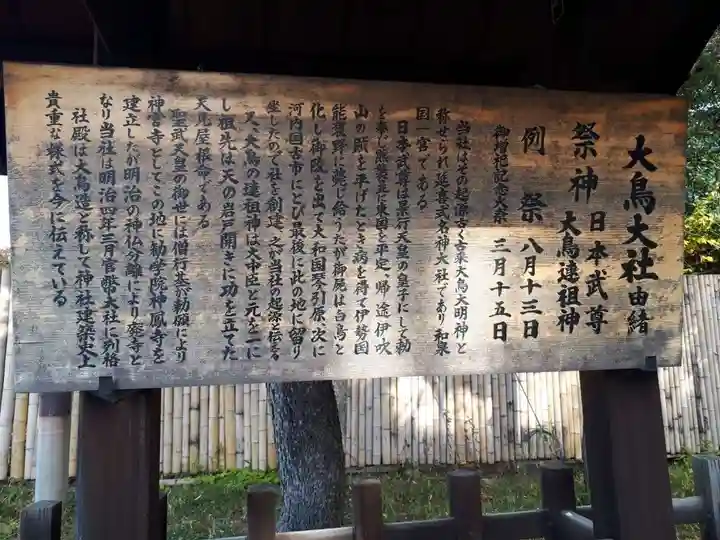 大鳥大社由緒
祭神 日本武尊
大鳥連祖神
例祭 八月十三日
御増祀記念大祭 三月十五日
当社はその起源古く古来大鳥大明神と
称せられ延喜式名神大社であり和泉
国一宮である
日本武尊は景行天皇の皇子にして勅
を奉じ熊襲並に東国を平定、帰途伊吹
山の賊を平げたとき病を得て伊勢国
能褒野に薨じ給うたが御屍は白鳥と
化し御陵を出で大和国琴引原、次に
河内国古市にとび最後に此の地に留り
坐したので社を創建、之が当社の起源と伝う
又、大鳥の連祖神は大中臣と元を一に
し祖先は天の岩戸開きに功を立てた
天児屋根命である
聖武天皇の御世には僧行基が勅願により
神宮寺としてこの地に勧学院神鳳寺を
建立したが明治の神仏分離により廃寺と
なり当社は明治四年三月官幣大社に列格
社殿は大鳥造と称して神社建築史上
貴重な様式を今に伝えている